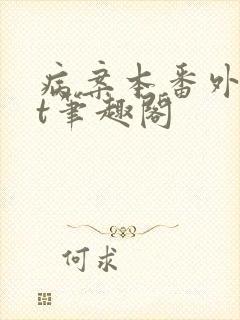 病案本番外
t笔趣阁
何求